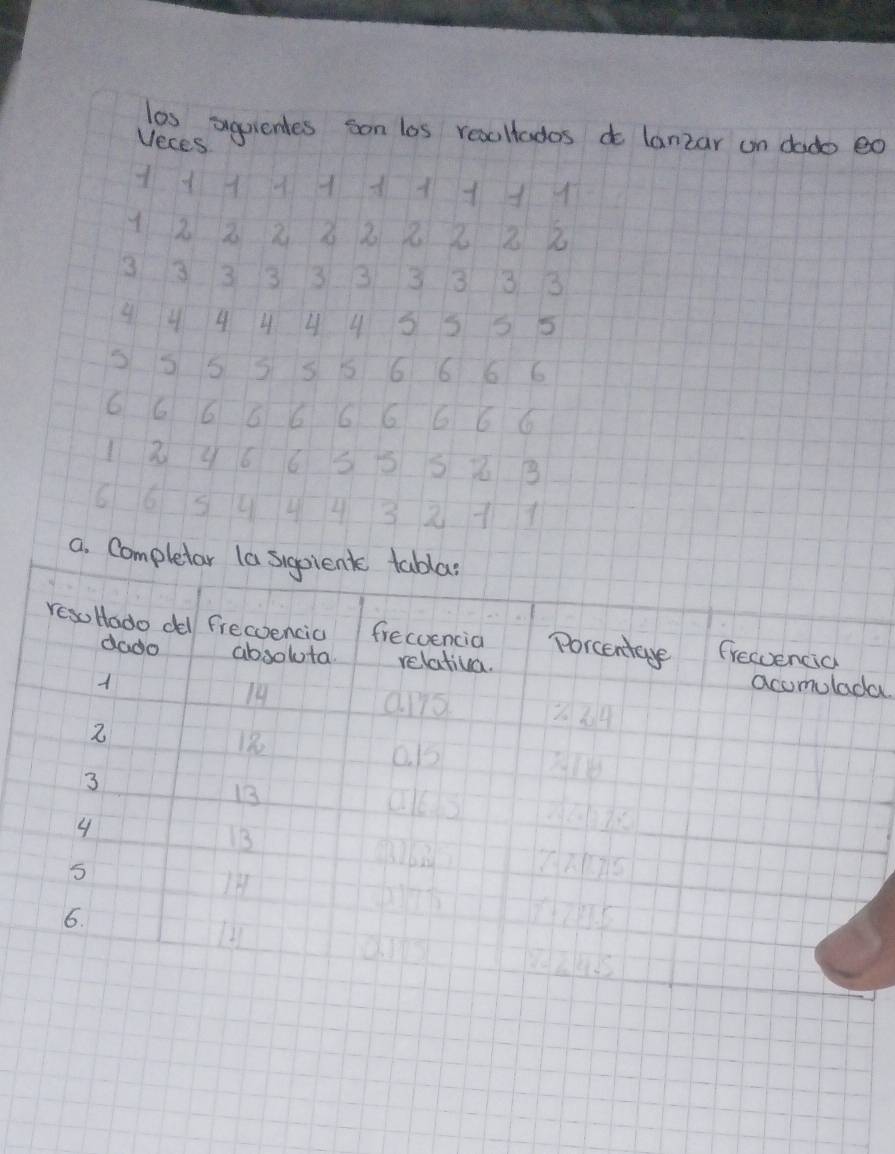 los siguientes son los resultados de lanzar un dado 80
Veces
1 1 1 1 1 1 1 1 1 1
1 2 2 2 2 2 2 2 2 2
3 3 3 3 3 3 3 3 3 3
4 4 4 4 4 4 5 5 5 5
5 5 5 5 5 5 6 6 6 6
6 6 6 6 6 6 6 6 6 6
1 2 4 6 6 5 5 5 2 3
6 6 5 4 4 4 3 2 1 1
a. Completar la siguiente tabla:
resultado del dado frecuencia absoluta frecuencia relativa. Porcentaje frecuencia acumulada
1 14 0.175
2 12 0.15
3 13
4 13
5 14
6. 14 0.175